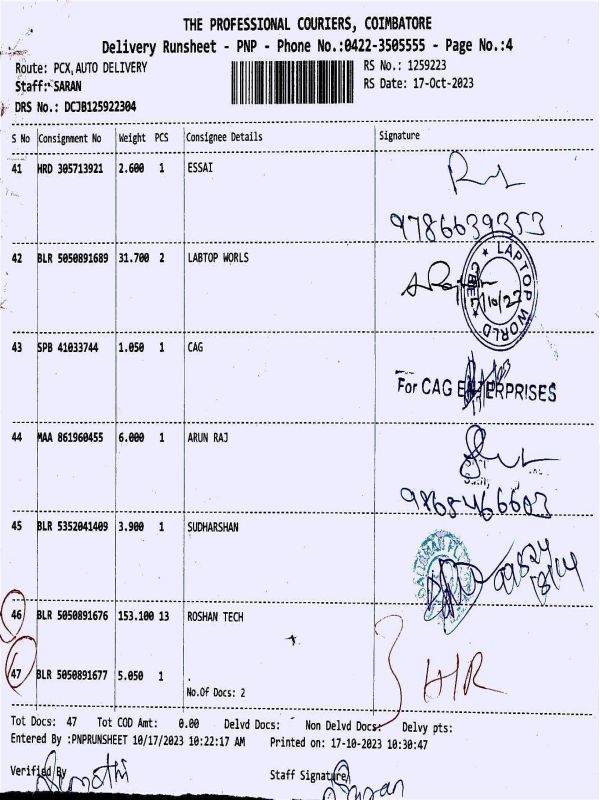 THE PROFESSIONAL COURIERS, COIMBATORE
Delivery Runsheet - PNP - Phone No.:0422-3505555 - Page No.:4
Route: PCX AUTO DELIVERY
RS No.: 1259223
Staff: SARAN
RS Date: 17-Oct-2023
DRS No.: DCJB125922304
S No Consignment No Weight PCS Consignee Details Signature
41 HRD 305713921 2.600 1 ESSAI
9786639353
42 BLR 5050891689 31.700 2 LABTOP WORLS
LAPTOP WORLD
CBE
43 SPB 41033744 1.050 1 CAG
For CAG ENTERPRISES
44 MAA 861960455 6.000 1 ARUN RAJ
9865466603
45 BLR 5352041409 3.900 1 SUDHARSHAN
46 BLR 5050891676 153.100 13 ROSHAN TECH
HR
47 BLR 5050891677 5.050 1 .
No.Of Docs: 2
Tot Docs: 47 Tot COD Amt: 0.00 Delvd Docs: Non Delvd Docs: Delvy pts:
Entered By :PNPRUNSHEET 10/17/2023 10:22:17 AM Printed on: 17-10-2023 10:30:47
Verified By
Staff Signature